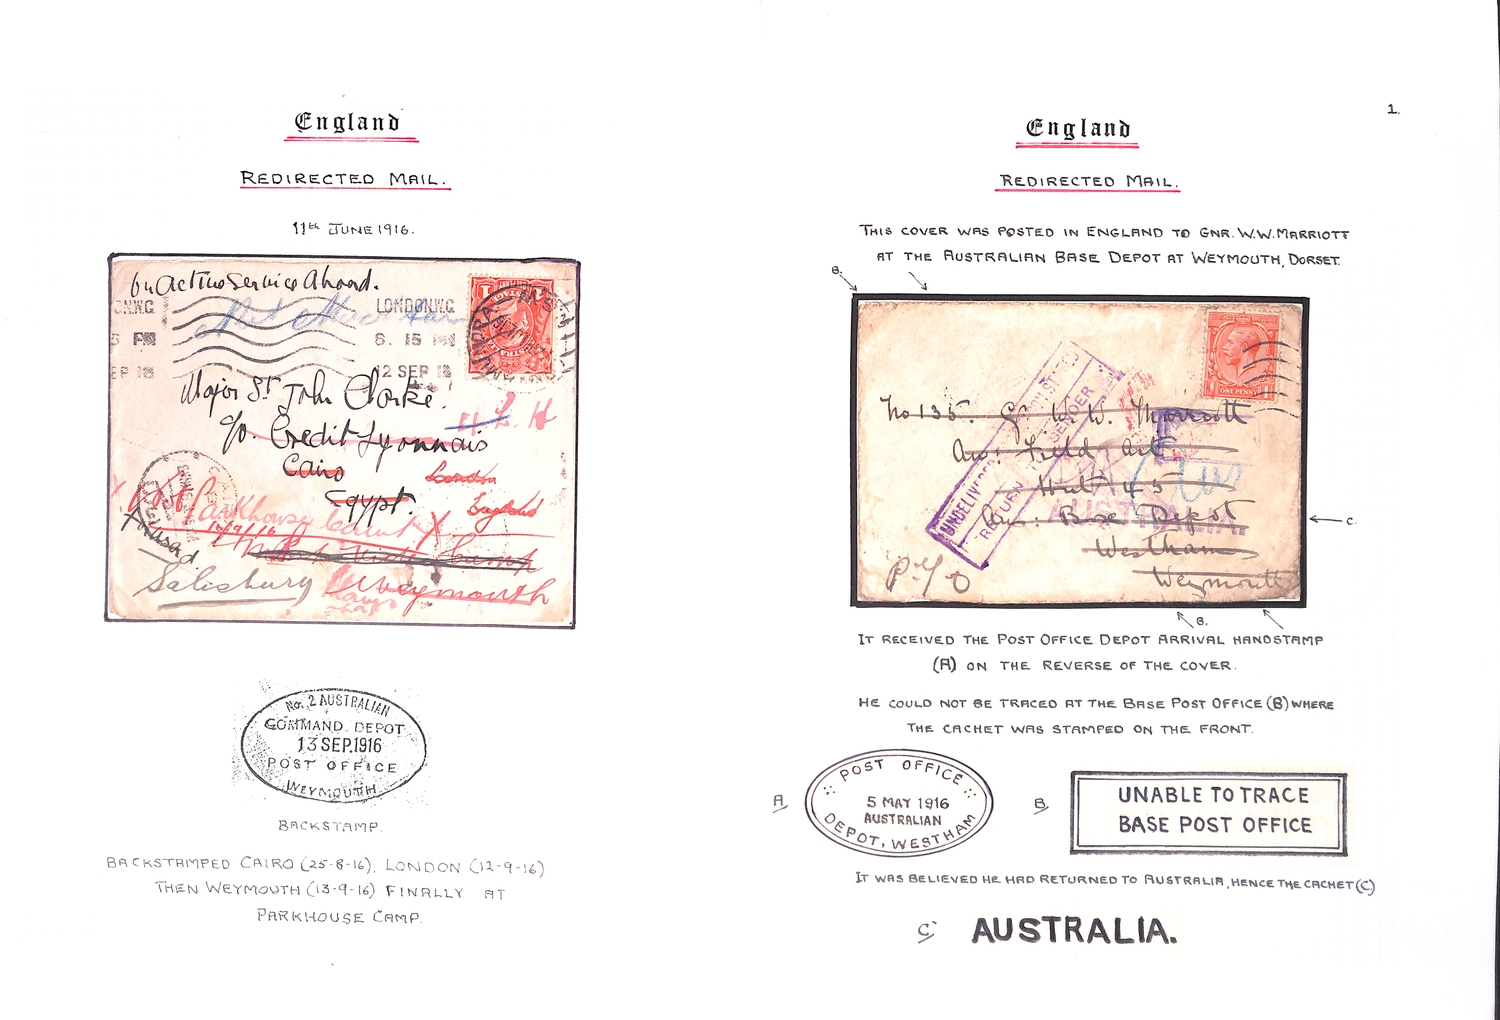 England
REDIRECTED MAIL.
11th JUNE 1916.
On Active Service Abroad.
ON.W.C
LONDON.W.C
5 PM
6. 15 PM
EP 16
12 SEP 16
Major St John Clarke.
c/o. Credit Lyonnais
Cairo
Egypt.
London
England
Parkhouse Camp
16/9/16
Salisbury
Weymouth
No. 2 AUSTRALIAN
COMMAND DEPOT
13 SEP.1916
POST OFFICE
WEYMOUTH
BACKSTAMP.
BACKSTAMPED CAIRO (25-8-16), LONDON (12-9-16)
THEN WEYMOUTH (13-9-16) FINALLY AT
PARKHOUSE CAMP.
1.
England
REDIRECTED MAIL.
THIS COVER WAS POSTED IN ENGLAND TO GNR. W.W. MARRIOTT
AT THE AUSTRALIAN BASE DEPOT AT WEYMOUTH, DORSET.
B.
ONE PENNY
No 135. Gr. W. W. Marriott
Aus: Field Art.
Hut 45
Aus: Base Depot
Westham
Weymouth
UNDELIVERED
RETURN SENDER
AUSTRALIA.
P.T.O
C.
B.
IT RECEIVED THE POST OFFICE DEPOT ARRIVAL HANDSTAMP
(A) ON THE REVERSE OF THE COVER.
HE COULD NOT BE TRACED AT THE BASE POST OFFICE (B) WHERE
THE CACHET WAS STAMPED ON THE FRONT.
A
POST OFFICE
5 MAY 1916
AUSTRALIAN
DEPOT, WESTHAM
B
UNABLE TO TRACE
BASE POST OFFICE
IT WAS BELIEVED HE HAD RETURNED TO AUSTRALIA, HENCE THE CACHET (C)
C
AUSTRALIA.